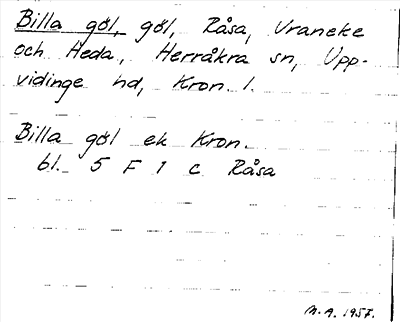 Billa göl, göl, Råsa, Vraneke
och Heda, Herråkra sn, Upp-
vidinge hd, Kron. l.
Billa göl ek Kron.
bl. 5 F 1 c Råsa
M.A. 1957.